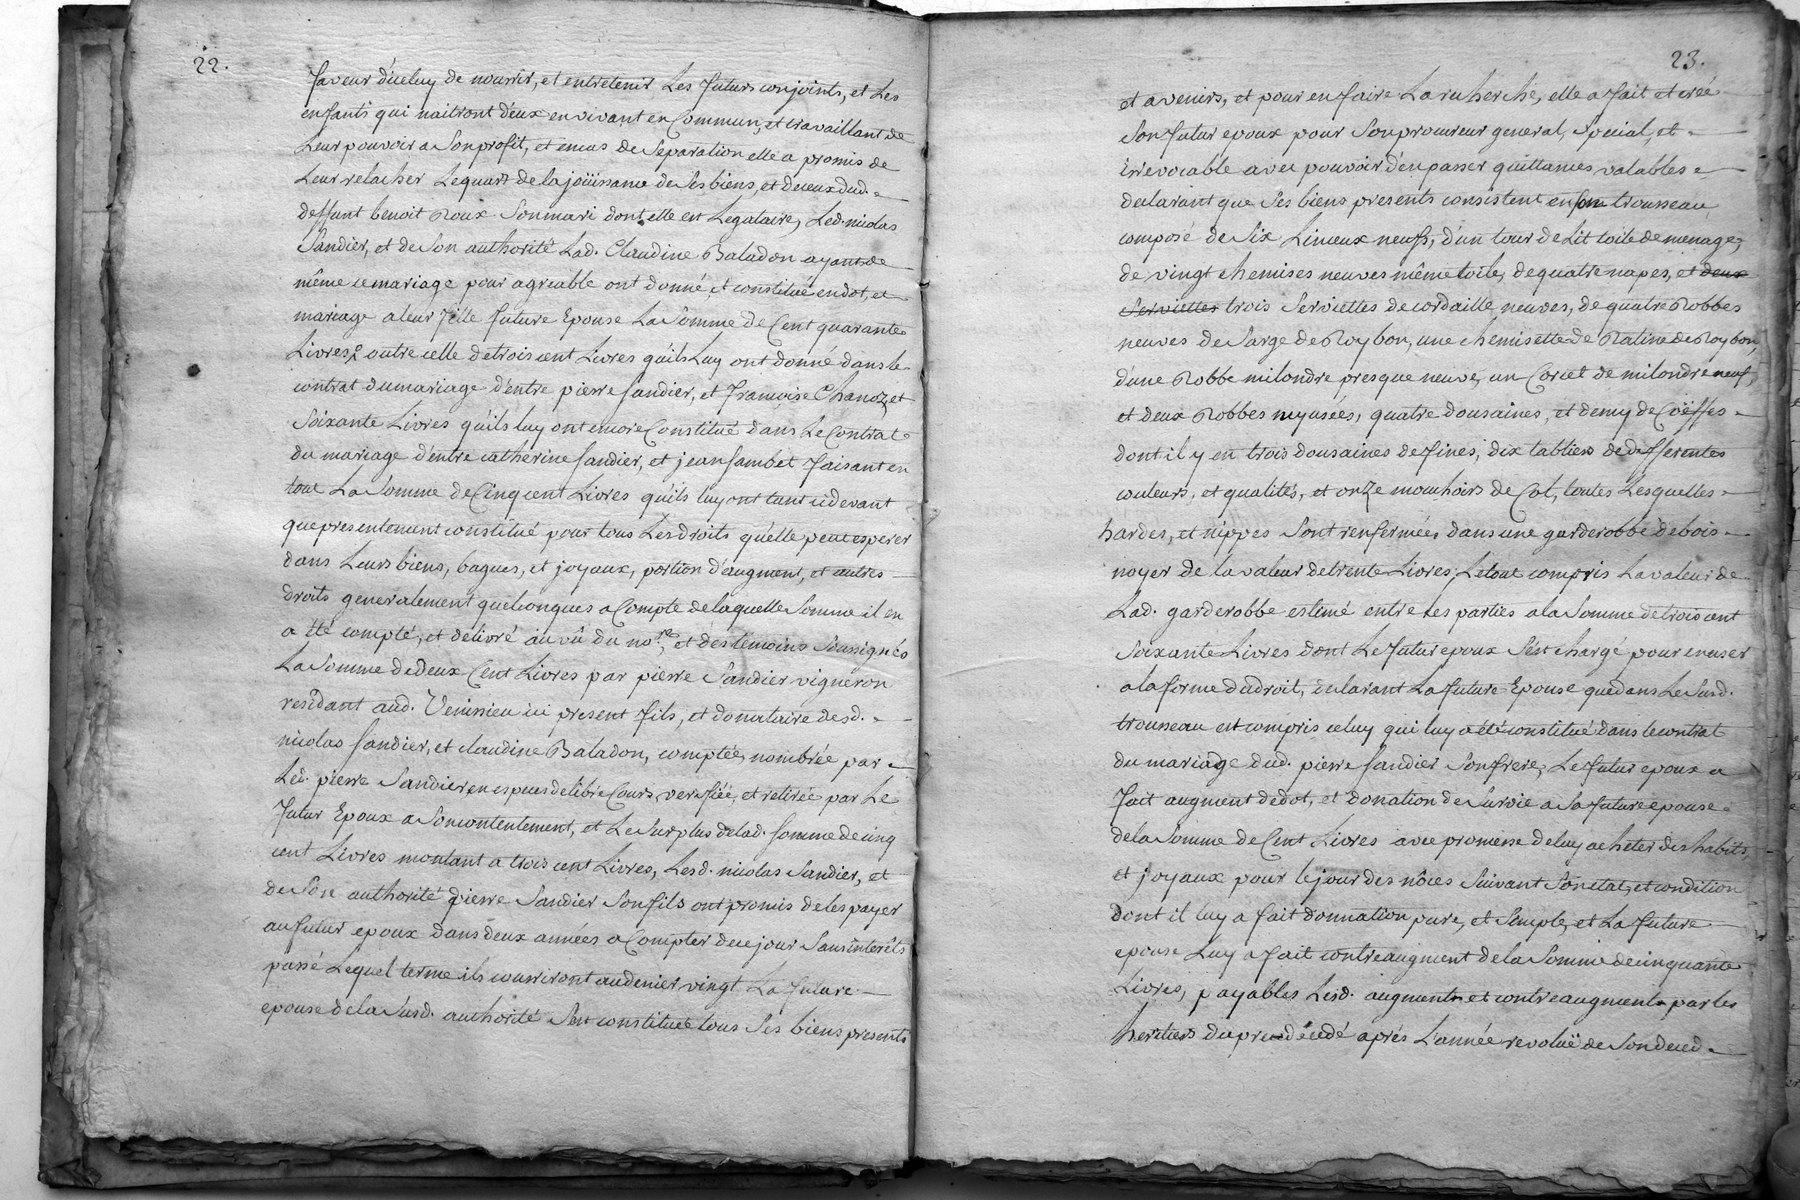 22.
faveur d'iceluy de nourrir, et entretenir Les futurs conjoints, et Les
enfants qui naitront d'eux en vivant en Commun, et travaillant de
Leur pouvoir a Son profit, et en cas de Separation elle a promis de
Leur relacher Le quart de la joüissance de Ses biens, et de ceux dud.
deffunt benoit Roux Son mari dont elle est Legataire, Led. nicolas
Sandier, et de Son authorité Lad. Claudine Baladon ayant de
même ce mariage pour agreable ont donné, et constitué en dot, et
mariage a leur fille future Epouse La Somme de Cent quarante
Livres, outre celle de trois cent Livres qu'ils Luy ont donné dans le
contrat du mariage d'entre pierre Sandier, et Françoise Chanoz, et
Soixante Livres qu'ils luy ont encore Constitué dans Le Contrat
du mariage d'entre catherine Sandier, et jean Jambet faisant en
tout La Somme de Cinq cent Livres qu'ils luy ont tant cidevant
que presentement constitué pour tous Les droits qu'elle peut esperer
dans Leurs biens, bagues, et joyaux, portion d'augment, et autres
droits generalement quelconques a Compte de laquelle Somme il en
a été compté, et delivré au vû du nore, et des temoins Soussignés
La Somme de deux Cent Livres par pierre Sandier vigneron
residant aud. Venissieu ici present fils, et donataire desd.
nicolas Sandier, et claudine Baladon, comptée, nombrée par
Led. pierre Sandier en especes de libre Cours, verifiée, et retirée par Le
futur Epoux a Son contentement, et Le Surplus de lad. Somme de cinq
cent Livres montant a trois cent Livres, Lesd. nicolas Sandier, et
de Son authorité pierre Sandier Son fils ont promis de les payer
au futur epoux dans deux années a Compter de ce jour Sans interêts
passé Lequel terme ils courriront au denier vingt. La future
epouse de la Susd. authorité S'est constituée tous Ses biens presents
23.
et a venirs, et pour en faire La recherche, elle a fait et créé
Son futur epoux pour Son procureur general, Special, et
Irrevocable avec pouvoir d'en passer quittances valables
declarant que Ses biens presents consistent en Son trousseau
composé de Six Linceux neufs, d'un tour de Lit toile de menage,
de vingt chemises neuves même toile, de quatre napes, et deux
Serviettes trois Serviettes de cordaille neuves, de quatre Robbes
neuves de Sarge de Roybon, une chemisette de Ratine de Roybon,
d'une Robbe milondre presque neuve, un Corcet de milondre neuf,
et deux Robbes my usées, quatre dousaines, et demy de Coëffes
dont il y en trois dousaines de fines, dix tabliers de differentes
couleurs, et qualités, et onze mouchoirs de Col, toutes Lesquelles
hardes, et nippes Sont renfermées dans une garderobbe de bois
noyer de la valeur de trente Livres, Le tout compris La valeur de
Lad. garderobbe estimé entre Les parties a la Somme de trois cent
Soixante Livres dont Le futur epoux S'est chargé pour en user
a la forme du droit, declarant La future Epouse que dans Le Susd.
trousseau est compris celuy qui luy a été constitué dans le contrat
du mariage dud. pierre Sandier Son frere, Le futur epoux a
fait augment de dot, et donation de Survie a Sa future epouse
de la Somme de Cent Livres avec promesse de luy acheter des habits,
et joyaux pour le jour des nôces Suivant Son etat, et condition
dont il luy a fait donnation pure, et Simple, et La future
epouse Luy a fait contreaugment de la Somme de cinquante
Livres, payables Lesd. augment et contreaugment par les
heritiers du predecedé aprés L'année revoluë de Son deced.